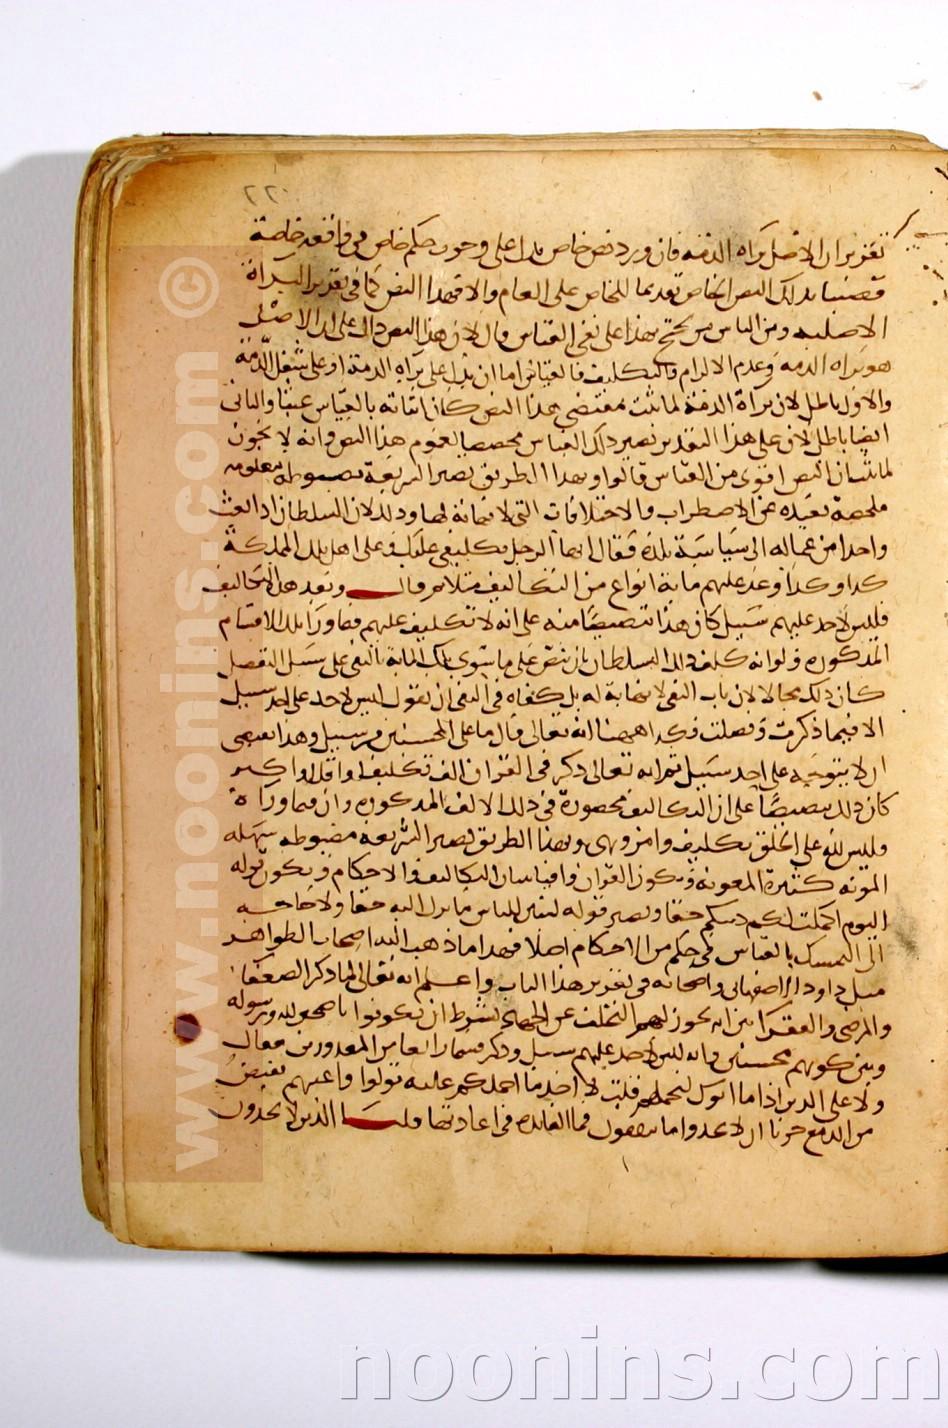 ٢٢٠
تقرير ان الاصل براة الذمة فان ورد نص خاص يدل على وجوب حكم خاص في واقعه خاصة
قضينا بذلك النص الخاص تقديما للخاص على العام والا فهذا النص كاف في تقرير البراة
الاصليه ومن الناس من يحتج بهذا على نفي القياس قال لان هذا النص دال على ان الاصل
هو براه الذمه وعدم الالزام والتكليف فالقياس اما ان يدل على براه الذمة او على شغل الذمة
والاول باطل لان براة الذمة لما ثبت بمقتضى هذا النص كان اثباته بالقياس عبثا والثاني
ايضا باطل لان على هذا التقدير يصير ذلك القياس مخصصا لعموم هذا النص وانه لا يجوز
لما بينا ان النص اقوى من القياس قالوا وبهذا الطريق تصير الشريعة مضبوطه معلومه
ملخصة بعيده عن الاضطراب والاختلافات التي لا نهاية لها وذلك لان السلطان اذا بعث
واحدا من عماله الى سياسة بلدة فقال له ايها الرجل تكليفي عليك وعلى اهل تلك المملكة
كذا وكذا وعد عليهم ماية انواع من التكاليف مثلا ثم قال وبعد هذه التكاليف
فليس لاحد عليهم سبيل كان هذا تنصيصا منه على انه لا تكليف عليهم فيما ورا تلك الاقسام
المذكوره ولو انه كلف ذلك السلطان بان ينص على ما سوى تلك الماية بالنفي على سبيل التفصيل
كان ذلك محالا لان باب النفي لا نهاية له بل كفاه في النفي ان يقول ليس لاحد على احد سبيل
الا فيما ذكرت وفصلت فكذا ههنا انه تعالى قال ما على المحسنين من سبيل وهذا يقتضي
ان لا يتوجه على احد سبيل ثم انه تعالى ذكر في القران الف تكليف او اقل او اكثر
كان ذلك تنصيصا على ان التكاليف محصورة في ذلك الالف المذكوره وان فيما وراه
فليس لله على الخلق تكليف وامر ونهي وبهذا الطريق تصير الشريعه مضبوطه سهله
المونه كثيرة المعونه ويكون القران وافيا ببيان التكاليف والاحكام ويكون قوله
اليوم اكملت لكم دينكم حقا ويصير قوله لتبين للناس ما نزل اليه حقا ولا حاجه
الى التمسك بالقياس في حكم من الاحكام اصلا فهذا ما ذهب اليه اصحاب الظواهر
مثل داود الاصفهاني واصحابه في تقرير هذا الباب واعلم انه تعالى لما ذكر الضعفا
والمرضى والفقرا بين انه يجوز لهم التخلف عن الجهاد بشرط ان يكونوا ناصحين لله ورسوله
وبين كونهم محسنين وانه ليس لاحد عليهم سبيل وذكر قسما رابعا من المعذورين فقال
ولا على الدين اذا ما اتوك لتحملهم قلت لا اجد ما احملكم عليه تولوا واعينهم تفيض
من الدمع حزنا ان لا يجدوا ما ينفقون فما الفايده في اعادتها قلنا الذين لا يجدون
www.noonins.com ©
noonins.com